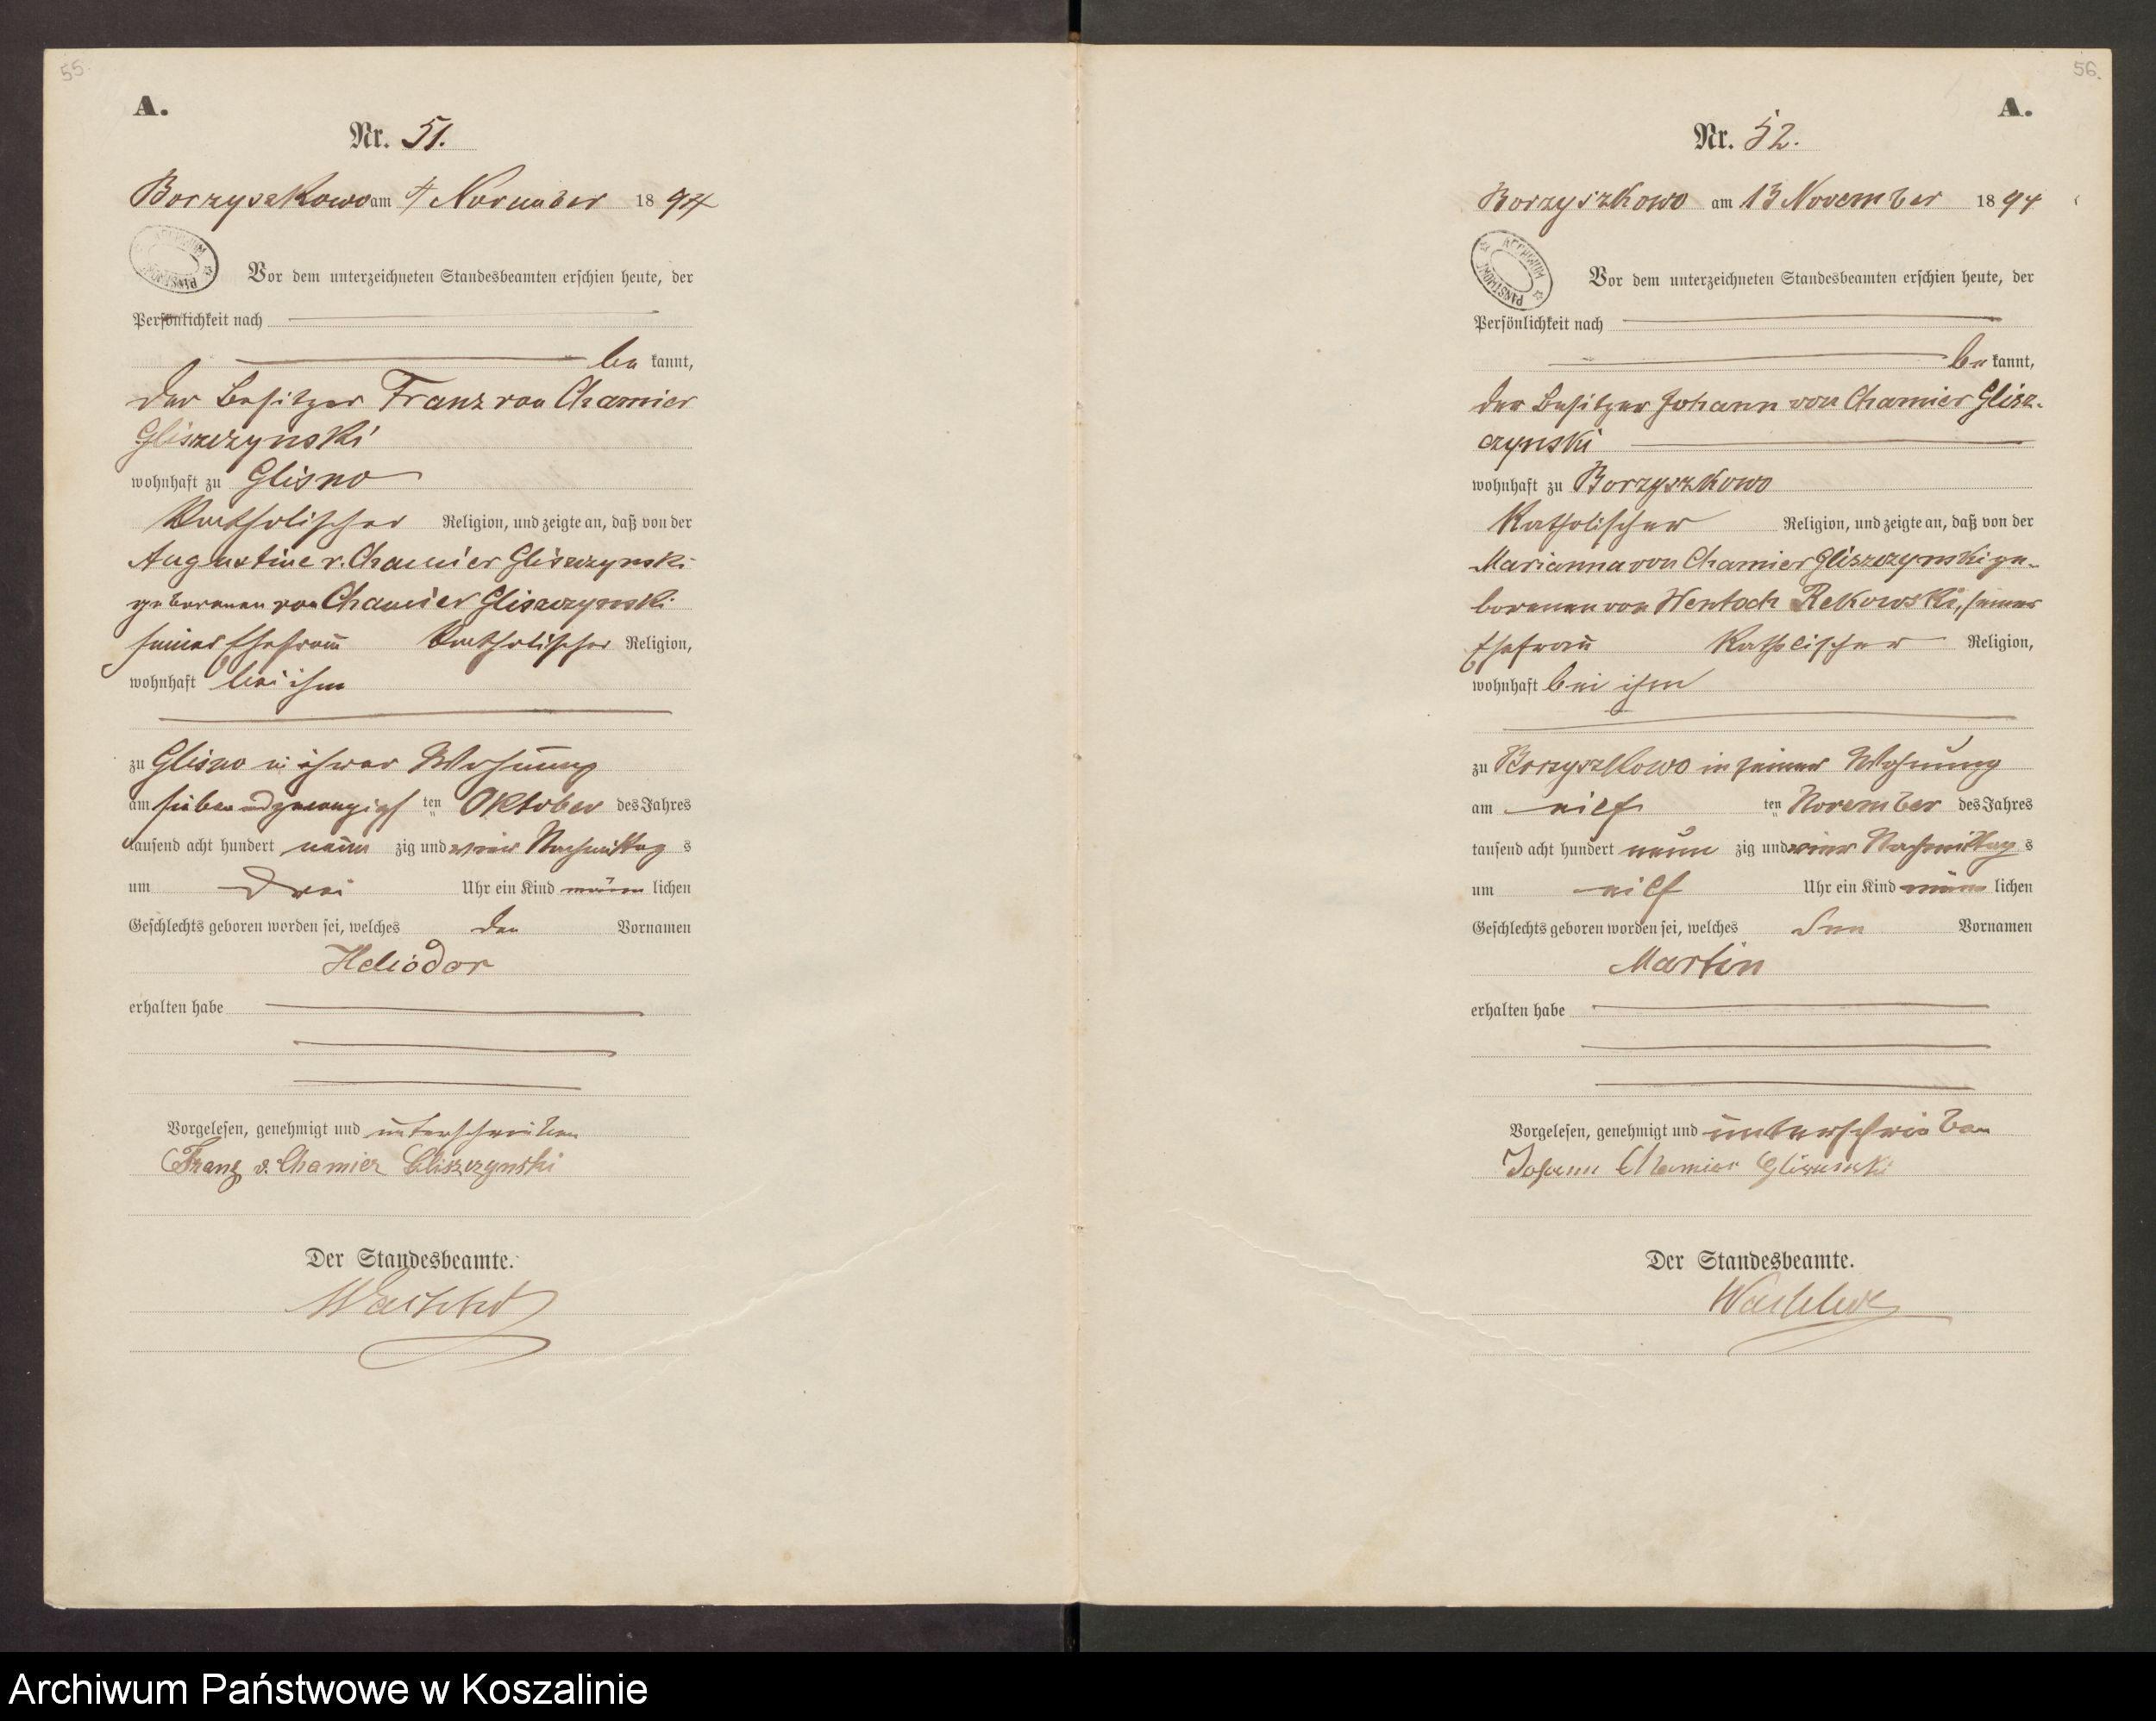 55.
A.
Nr. 51.
Borzyszkowo am 4 November 1894
ARCHIWUM PAŃSTWOWE
Vor dem unterzeichneten Standesbeamten erschien heute, der
Persönlichkeit nach
be kannt,
der Besitzer Franz von Chamier
Gliszczynski
wohnhaft zu Glisno
Katholischer Religion, und zeigte an, daß von der
Augustine v. Chamier Gliszczynski
geborenen von Chamier Gliszczynski
seiner Ehefrau Katholischer Religion,
wohnhaft bei ihm
zu Glisno in ihrer Wohnung
am sieben und zwanzigs ten Oktober des Jahres
tausend acht hundert neun zig und vier Nachmittag s
um drei Uhr ein Kind männ lichen
Geschlechts geboren worden sei, welches den Vornamen
Heliodor
erhalten habe
Vorgelesen, genehmigt und unterschrieben
Franz v. Chamier Gliszczynski
Der Standesbeamte.
56.
A.
Nr. 52.
Borzyszkowo am 13 November 1894
ARCHIWUM PAŃSTWOWE
Vor dem unterzeichneten Standesbeamten erschien heute, der
Persönlichkeit nach
be kannt,
der Besitzer Johann von Chamier Glisz-
czynski
wohnhaft zu Borzyszkowo
Katholischer Religion, und zeigte an, daß von der
Marianna von Chamier Gliszczynski ge-
borenen von Wentoch Rekowski, seiner
Ehefrau Katholischer Religion,
wohnhaft bei ihm
zu Borzyszkowo in seiner Wohnung
am eilf ten November des Jahres
tausend acht hundert neun zig und vier Nachmittag s
um eilf Uhr ein Kind männ lichen
Geschlechts geboren worden sei, welches den Vornamen
Martin
erhalten habe
Vorgelesen, genehmigt und unterschrieben
Johann Chamier
Der Standesbeamte.
Archiwum Państwowe w Koszalinie